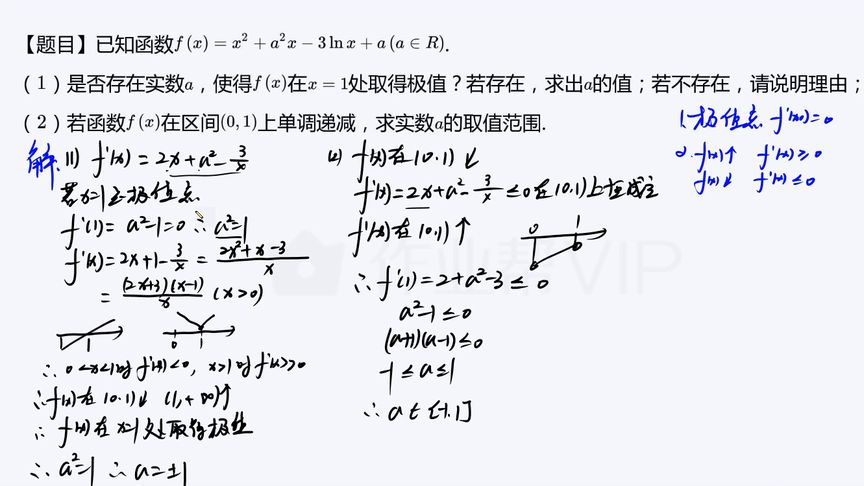 【题目】已知函数f(x)=x²+a²x-3lnx+a(a∈R).
(1)是否存在实数a,使得f(x)在x=1处取得极值?若存在,求出a的值;若不存在,请说明理由;
(2)若函数f(x)在区间(0,1)上单调递减,求实数a的取值范围.
解:(1) f'(x)=2x+a²-3/x
若x=1是极值点
f'(1)=a²-1=0 ∴a²=1
f'(x)=2x+1-3/x=(2x²+x-3)/x
=(2x+3)(x-1)/x (x>0)
1
0 1
∴0<x<1时f'(x)<0, x>1时f'(x)>0
∴f(x)在(0,1)↓ (1,+∞)↑
∴f(x)在x=1处取得极值
∴a²=1 ∴a=±1
(2) f(x)在(0,1)↓
f'(x)=2x+a²-3/x≤0在(0,1)上恒成立
f'(x)在(0,1)↑
0 1
∴f'(1)=2+a²-3≤0
a²-1≤0
(a+1)(a-1)≤0
-1≤a≤1
∴a∈[-1,1]
1.极值点 f'(x0)=0
2.f(x)↑ f'(x)≥0
f(x)↓ f'(x)≤0
作业帮VIP